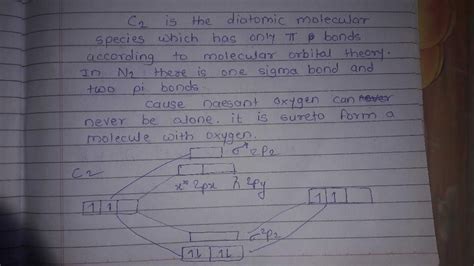 C2 is the diatomic molecular
species which has only π bonds
according to molecular orbital theory.
In N2 there is one sigma bond and
two pi bonds
cause naesant oxygen can never
never be alone. it is sure to form a
molecule with oxygen.
σ* 2pz
C2
π* 2px 2py
1 1
1 1
σ 2pz
1L 1L